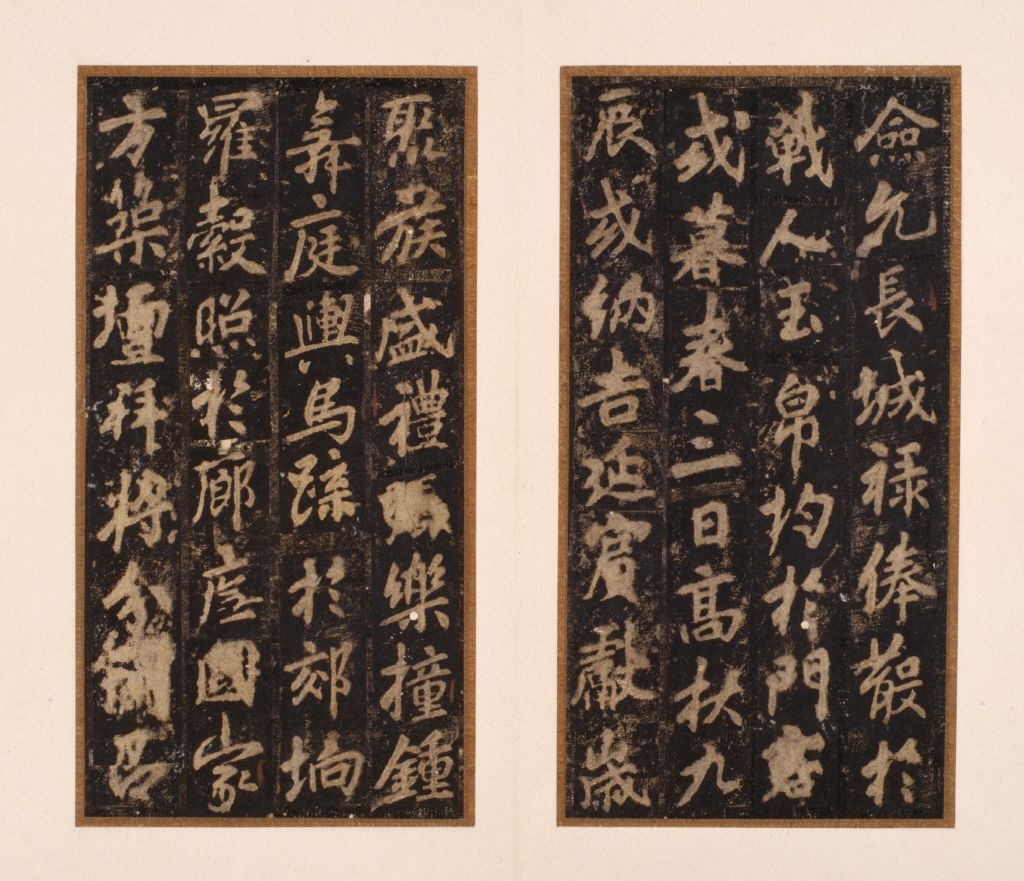 僉允長城祿俸散於
戰人玉帛均於門客
或暮春三日高秋九
辰或納吉延賓獻歲
聚族盛禮樂撞鍾
舞庭輿馬於郊坰
羅縠照於廊廡國家
方築壇拜將金召